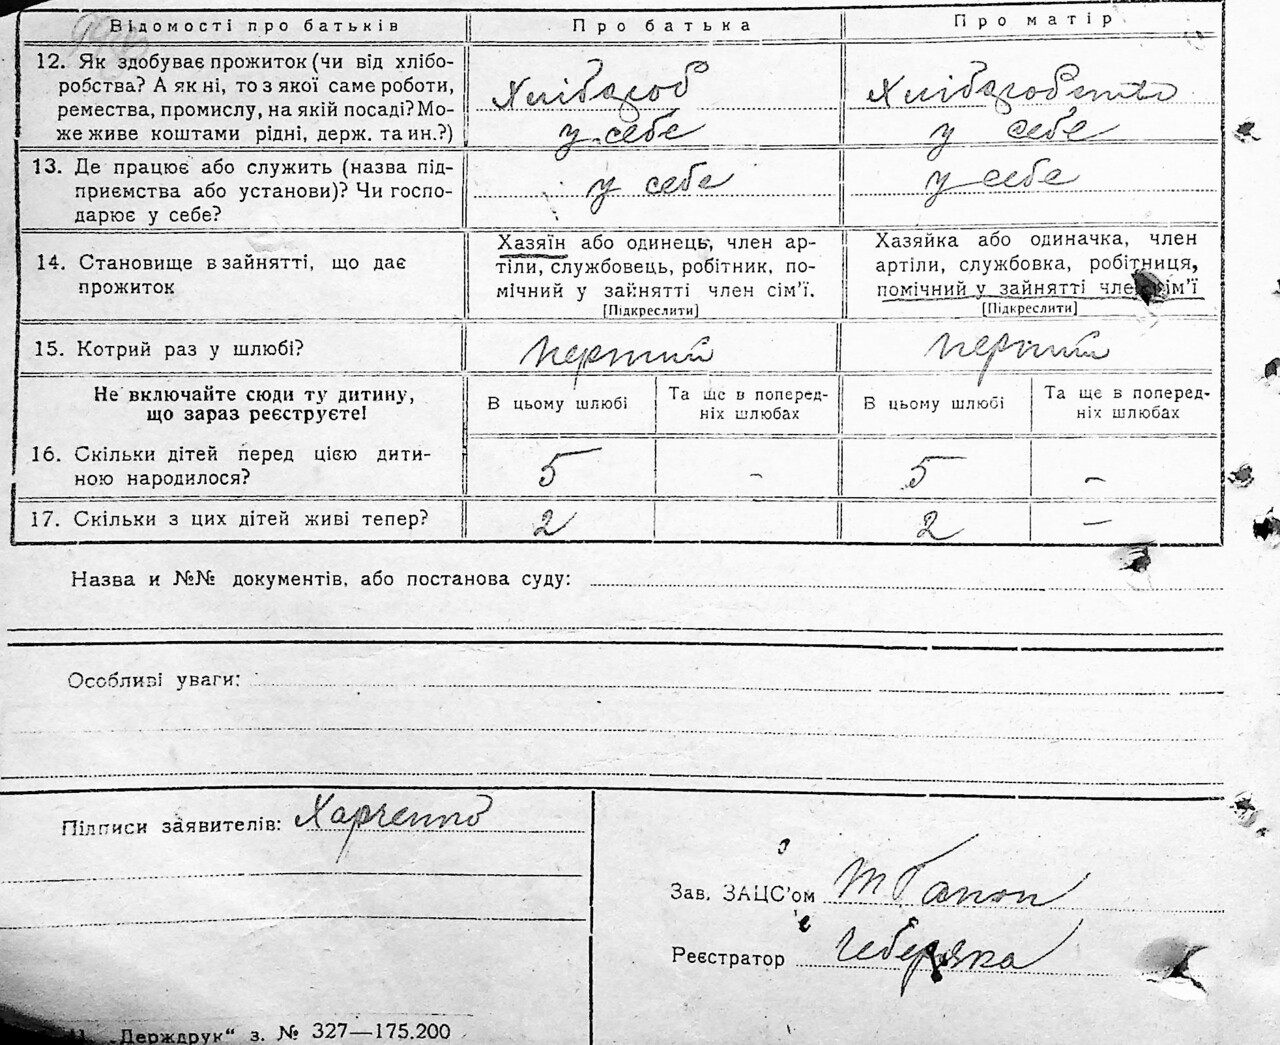 Відомості про батьків Про батька Про матір
12. Як здобуває прожиток (чи від хлібо-
робства? А як ні, то з якої саме роботи,
ремества, промислу, на якій посаді? Мо-
же живе коштами рідні, держ. та ин.?)
Хлібороб
у себе
Хліборобство
у себе
13. Де працює або служить (назва під-
приємства або установи)? Чи госпо-
дарює у себе?
у себе
у себе
14. Становище в зайнятті, що дає
прожиток
Хазяїн або одинець, член ар-
тіли, службовець, робітник, по-
мічний у зайнятті член сім'ї.
[Підкреслити]
Хазяйка або одиначка, член
артіли, службовка, робітниця,
помічний у зайнятті член сім'ї
[Підкреслити]
15. Котрий раз у шлюбі?
перший
перший
Не включайте сюди ту дитину,
що зараз реєструєте!
В цьому шлюбі
Та ще в поперед-
ніх шлюбах
В цьому шлюбі
Та ще в поперед-
ніх шлюбах
16. Скільки дітей перед цією дити-
ною народилося?
5 – 5 –
17. Скільки з цих дітей живі тепер?
2 2 –
Назва и №№ документів, або постанова суду:
Особливі уваги:
Підписи заявителів: Харченко
Зав. ЗАЦС'ом
Реєстратор Чеберяка
„Держдрук“ з. № 327—175.200